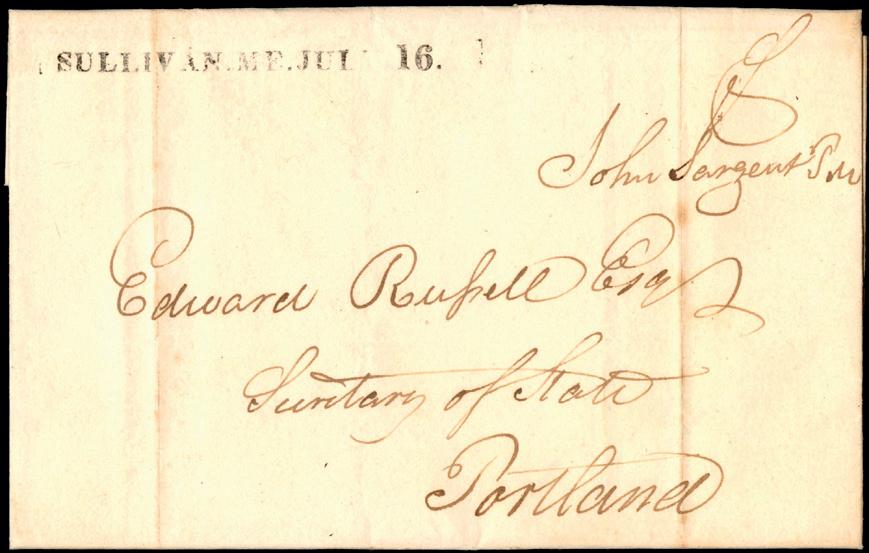 SULLIVAN.ME.JUL 16.
John Sargent P M
Edward Russell Esq
Secretary of State
Portland